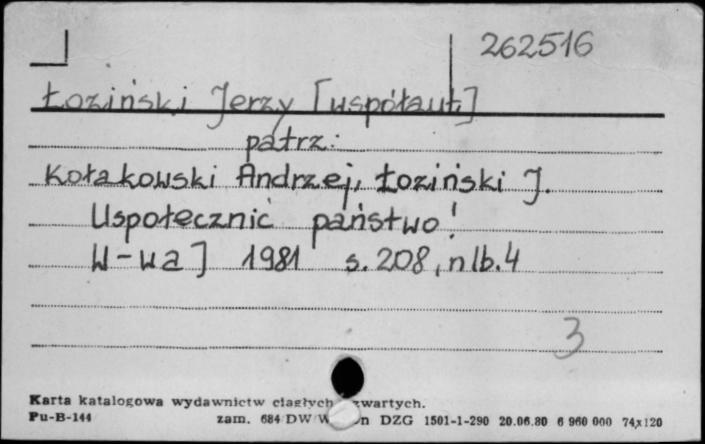 262516
Łoziński Jerzy [współaut.]
patrz:
Kołakowski Andrzej, Łoziński J.
Uspołecznić państwo!
W-wa] 1981 s. 208, nlb. 4
3
Karta katalogowa wydawnictw ciągłych zwartych.
Pu-B-144 zam. 684/DW/W DZG 1501-1-290 20.06.80 6 960 000 74x120